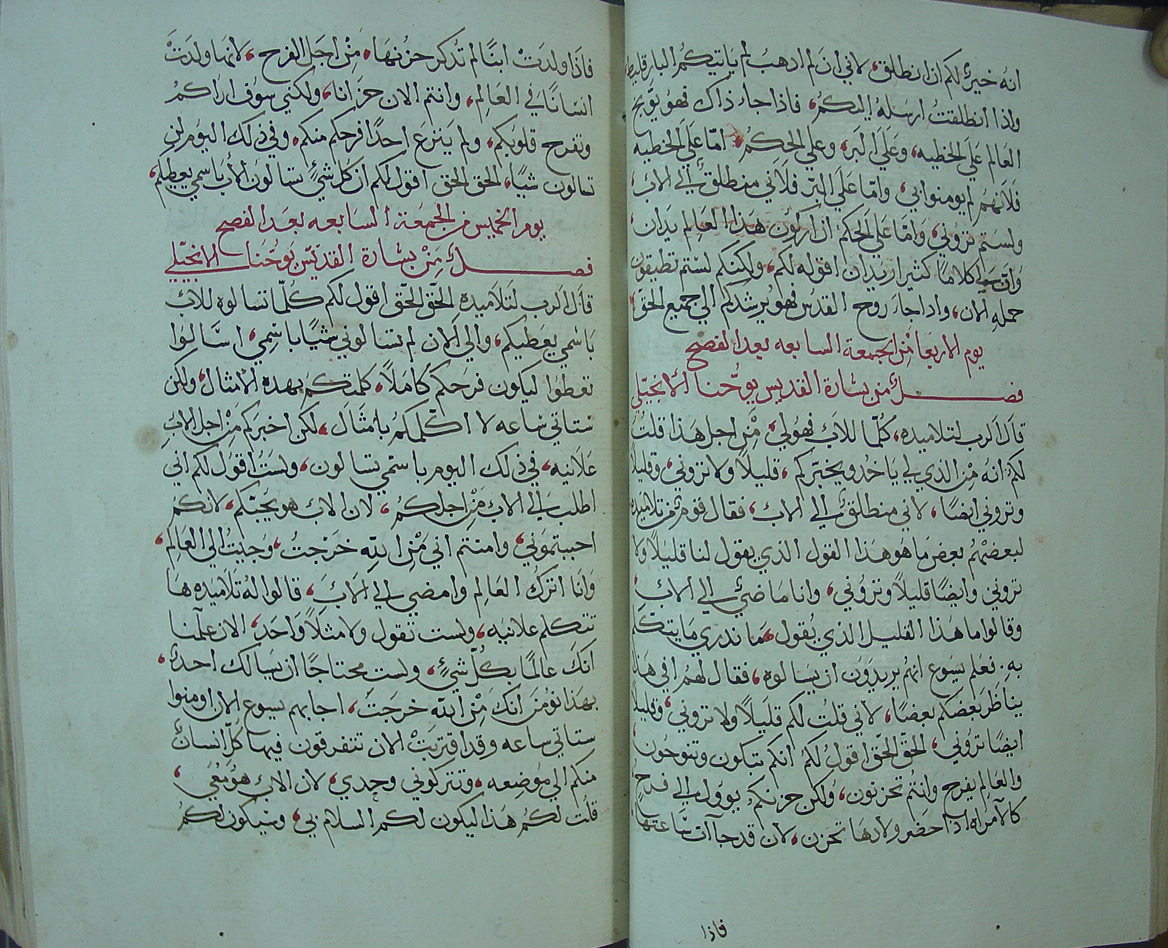 انه خير لكم ان انطلق، لاني ان لم اذهب لم ياتيكم البارقليط
واذا انطلقت ارسله اليكم، فاذا جاء ذاك فهو يوبخ
العالم على الخطيه، وعلى البر، وعلى الحكم، امّا على الخطيه
فلانهم لم يومنوا بي، وامّا على البر فلاني منطلق الى الاب،
ولستم تروني، وامّا على الحكم ان اركون هذا العالم يدان
وان لي كلاما كثير اريد ان اقوله لكم، ولكنكم لستم تطيقون
حمله الان، واذا جاء روح القدس فهو يرشدكم الي جميع الحق،
يوم الاربعا من الجمعة السابعه بعد الفصح
فصل من بشارة القديس يوحنا الانجيلي
قال الرب لتلاميذه، كلما للاب فهو لي، من اجل هذا قلت
لكم انه من الذي لي ياخذ ويخبركم، قليلاً ولا تروني، وقليلاً
وتروني ايضًا، لاني منطلق الى الاب، فقال قوم من تلاميذه
لبعضهم بعض ما هو هذا القول الذي يقول لنا قليلاً ولا
تروني وايضًا قليلاً وتروني، وانا ماضي الى الاب،
وقالوا ما هذا القليل الذي يقول، ما ندري ما يتكلم
به. فعلم يسوع انهم يريدون ان يسالوه، فقال لهم افي هذا
يناظر بعضكم بعضًا، لاني قلت لكم قليلاً ولا تروني، وقليلاً
ايضًا تروني، الحق الحق اقول لكم انكم تبكون وتنوحون،
والعالم يفرح وانتم تحزنون، ولكن حزنكم يوول الى فرح،
كالامراه اذا حضر ولادها تحزن، لان قد جاءت ساعتها،
فاذا
فاذا ولدت ابنًا لم تذكر حزنها، من اجل الفرح، لانها ولدت
انسانًا في العالم، وانتم الان حزانا، ولكني سوف اراكم
وتفرح قلوبكم، ولم ينزع احدًا فرحكم منكم، وفي ذلك اليوم لن
تسالون شيًا، الحق الحق اقول لكم ان كل شيٍ تسالون الاب باسمي يعطيكم،
يوم الخميس من الجمعة السابعه بعد الفصح
فصل من بشارة القديس يوحنا الانجيلي
قال الرب لتلاميذه الحق الحق اقول لكم كلما تسالوه للاب
باسمي يعطيكم، والى الان لم تسالوني شيًا باسمي، اسالوا
تعطوا ليكون فرحكم كاملاً، كلمتكم بهذه الامثال، ولكن
ستاتي ساعه لا اكلمكم بامثال، لكن اخبركم من اجل الاب
علانيه، في ذلك اليوم باسمي تسالون، ولست اقول لكم اني
اطلب الى الاب من اجلكم، لان الاب هو يحبكم، لانكم
احببتموني، وامنتم اني من الله خرجت، وجيت الى العالم،
وانا اترك العالم وامضي الى الاب، قالوا له تلاميذه ها
تتكلم علانيه، ولست تقول ولا مثلاً واحد، الان علمنا
انك عالمًا بكل شيٍ، ولست محتاجًا ان يسالك احد،
بهذا نومن انك من الله خرجت، اجابهم يسوع الان اومنوا
ستاتي ساعه وقد اقتربت الان تتفرقون فيها كل انسان
منكم الي موضعه، وتتركوني وحدي، لان الاب هو معي،
قلت لكم هذا ليكون لكم السلام بي، وسيكون لكم